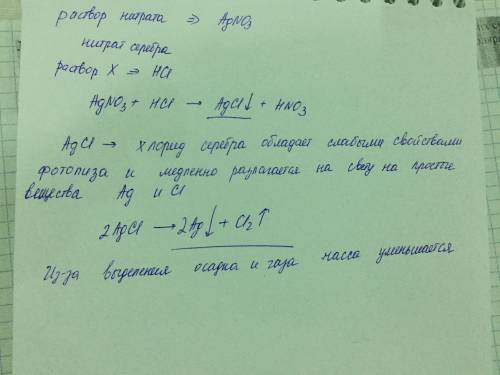 раствор нитрата ⇒ AgNO3
нитрат серебра
раствор X ⇒ HCl
AgNO3 + HCl → AgCl↓ + HNO3
AgCl → хлорид серебра обладает слабыми свойствами
фотолиза и медленно разлагается на свету на простые
вещества Ag и Cl
2AgCl → 2Ag↓ + Cl2↑
Из-за выделения осадка и газа масса уменьшается